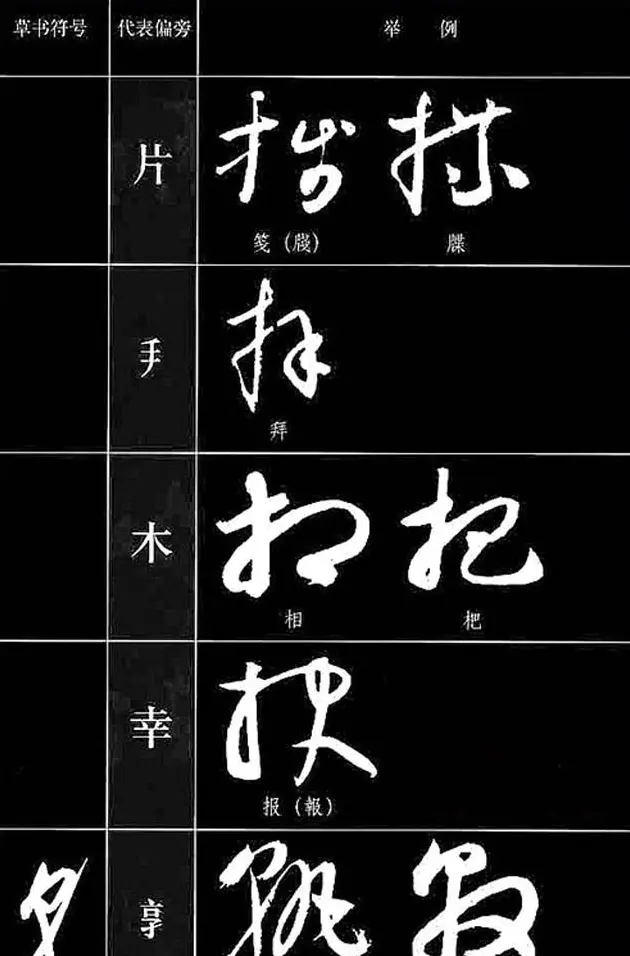 草书符号 代表偏旁 举 例
片
笺（牋） 牒
手
拜
木
相 杷
幸
报（報）